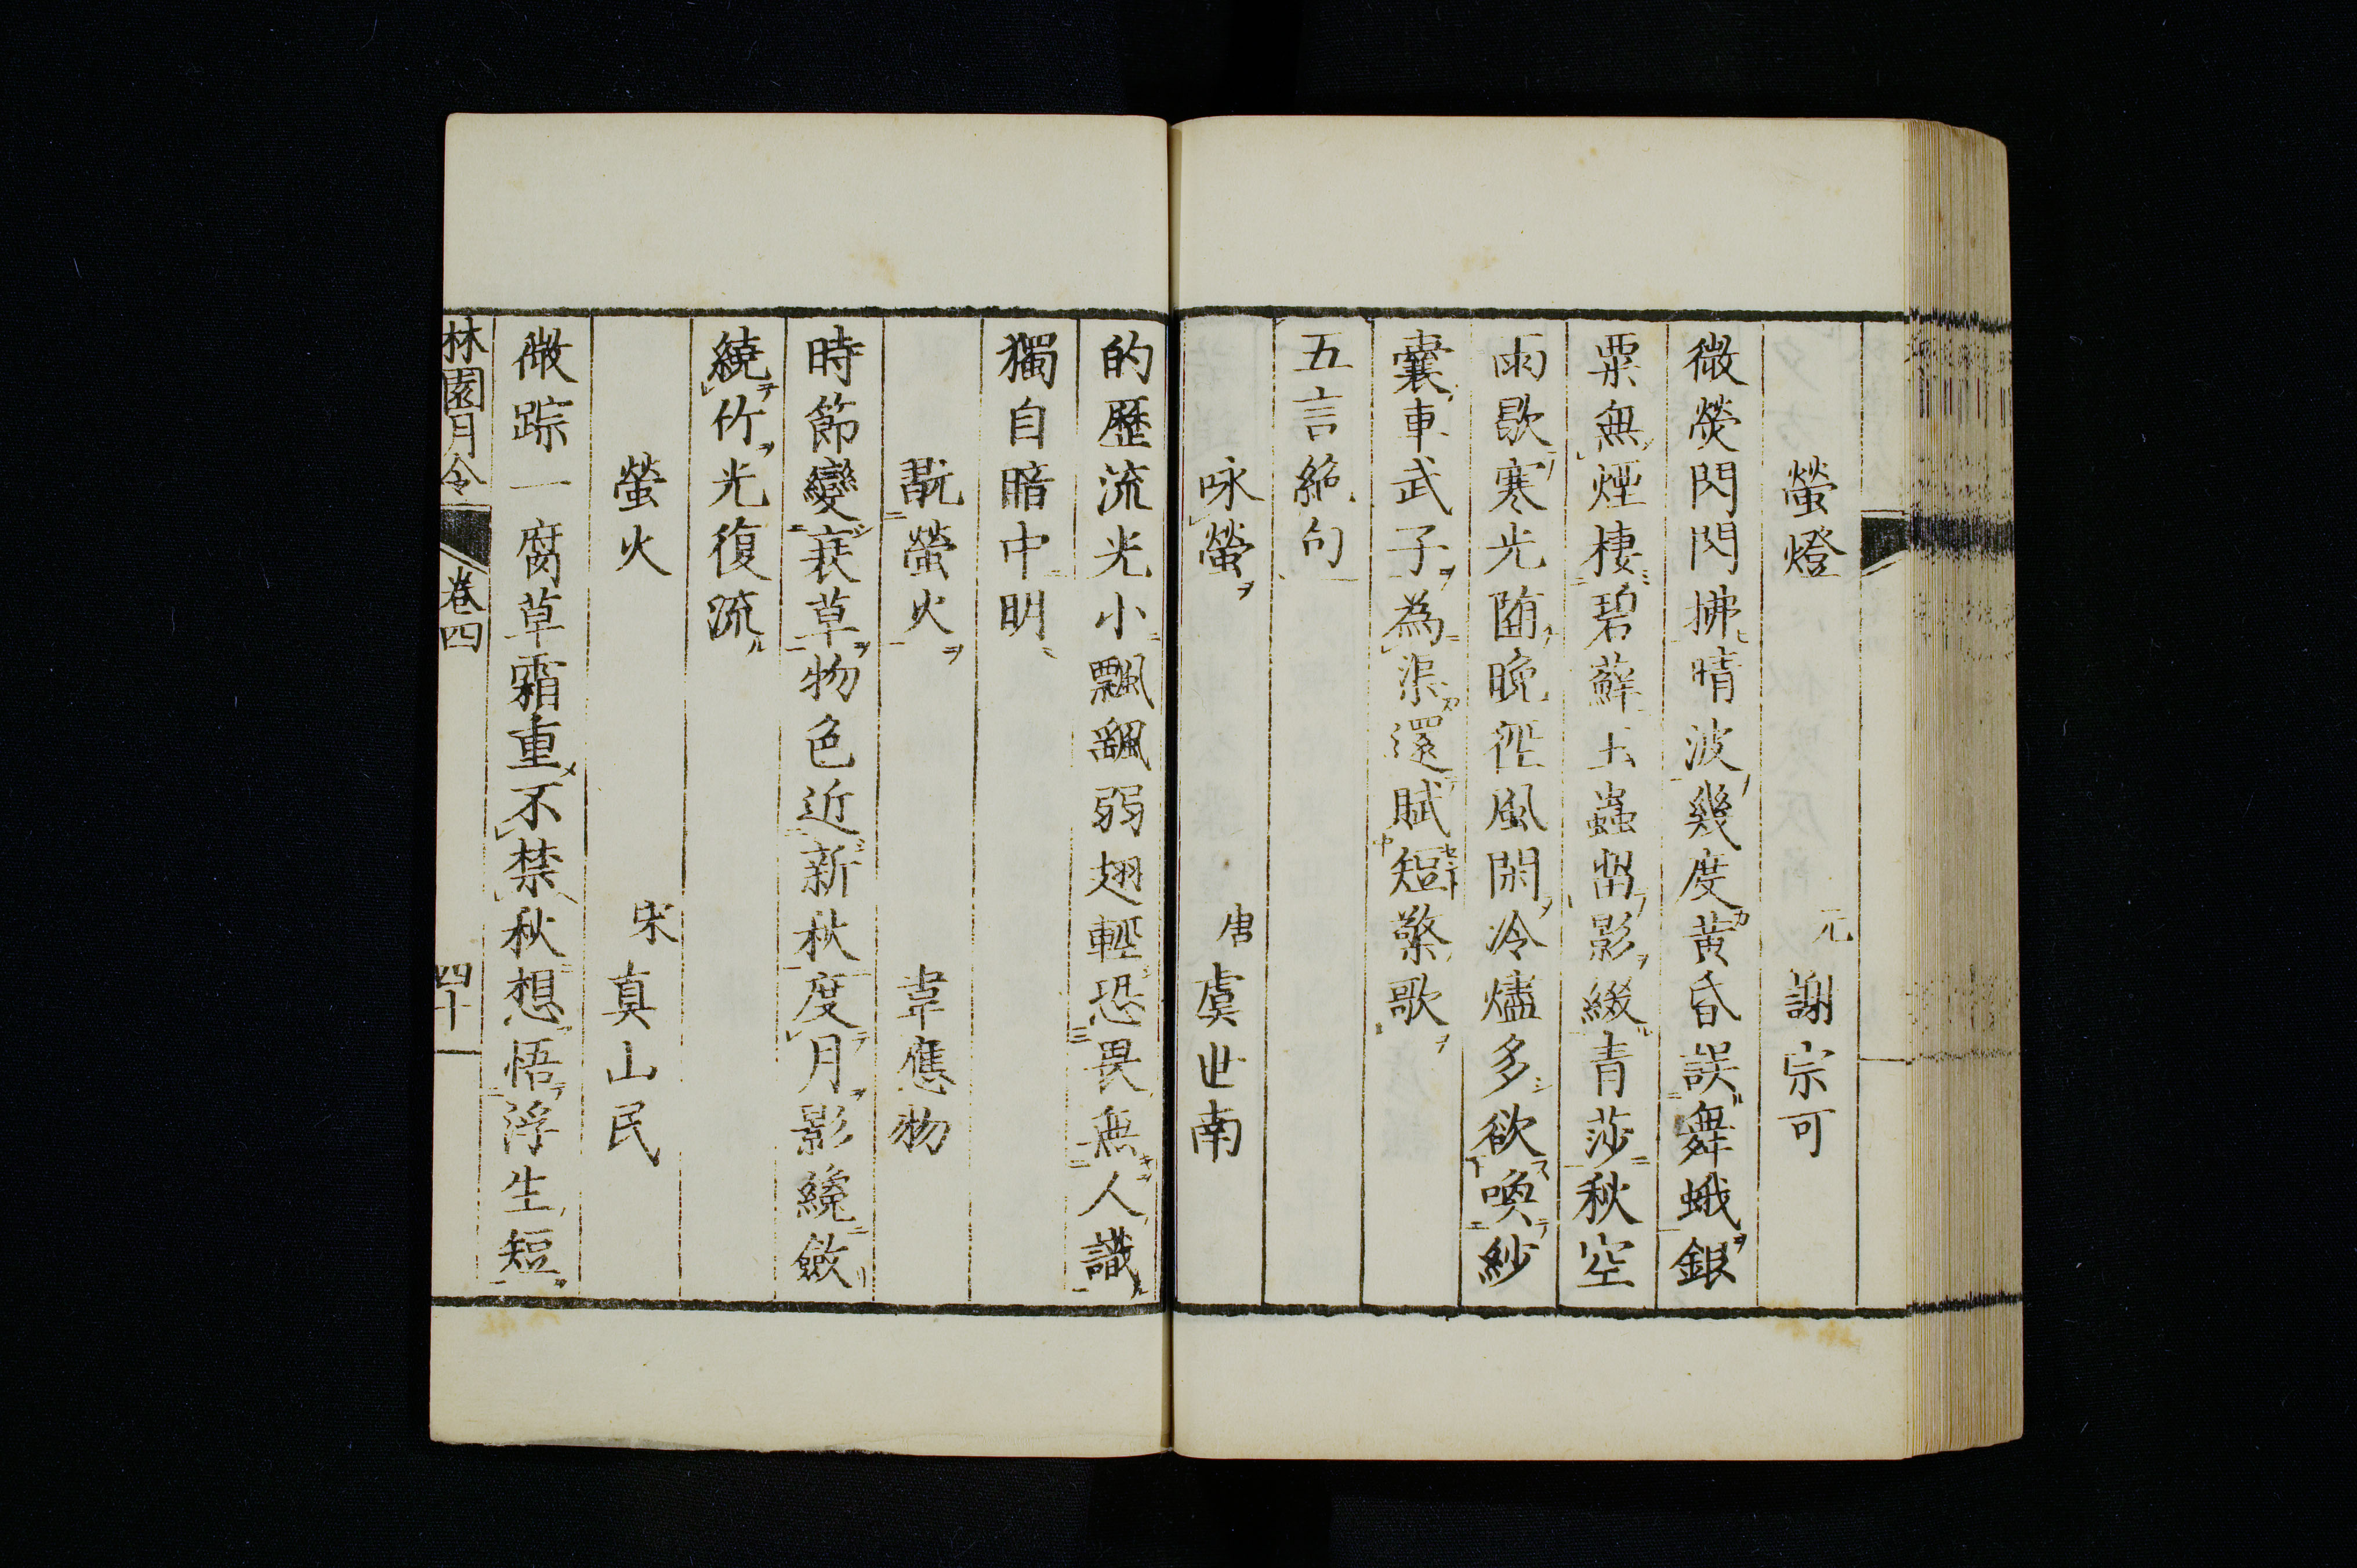 螢燈　元　謝宗可
微熒閃閃拂晴波幾度黄昏誤舞蛾銀
粟無煙棲碧蘚玉蟲留影綴青莎秋空
雨歇寒光随晩徑風閑冷燼多欲喚紗
囊車武子為渠還賦短檠歌
五言絶句
咏螢　唐　虞世南
的歷流光小飄颻弱翅輕恐畏無人識
獨自暗中明
翫螢火　韋應物
時節變衰草物色近新秋度月影纔斂
繞竹光復流
螢火　宋　真山民
微踪一腐草霜重不禁秋想悟浮生短
林園月令　卷四　四十